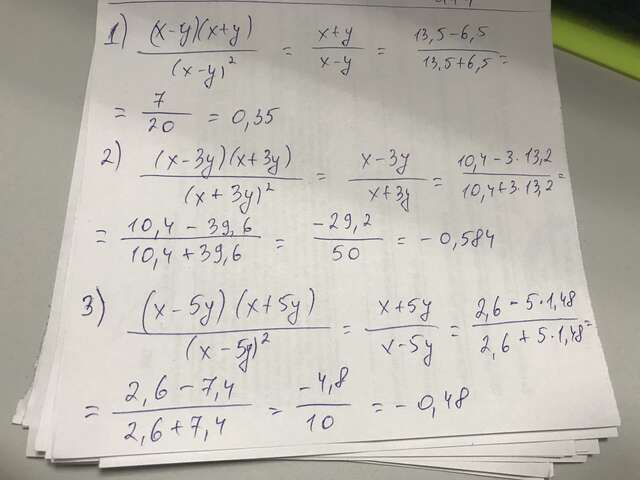 1) (x-y)(x+y)/(x-y)² = x+y/x-y = 13,5-6,5/13,5+6,5 =
= 7/20 = 0,35
2) (x-3y)(x+3y)/(x+3y)² = x-3y/x+3y = 10,4-3·13,2/10,4+3·13,2 =
= 10,4-39,6/10,4+39,6 = -29,2/50 = -0,584
3) (x-5y)(x+5y)/(x-5y)² = x+5y/x-5y = 2,6-5·1,48/2,6+5·1,48 =
= 2,6-7,4/2,6+7,4 = -4,8/10 = -0,48